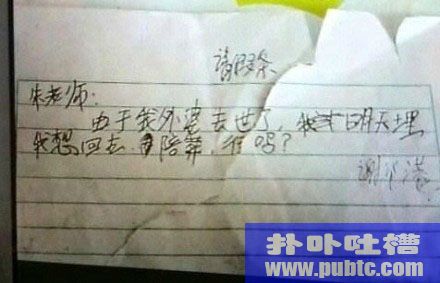 请假条
朱老师：
由于我外婆去世了，我 明天埋
我想回去 陪葬，行吗？
谢
扑卟吐槽
www.pubtc.com